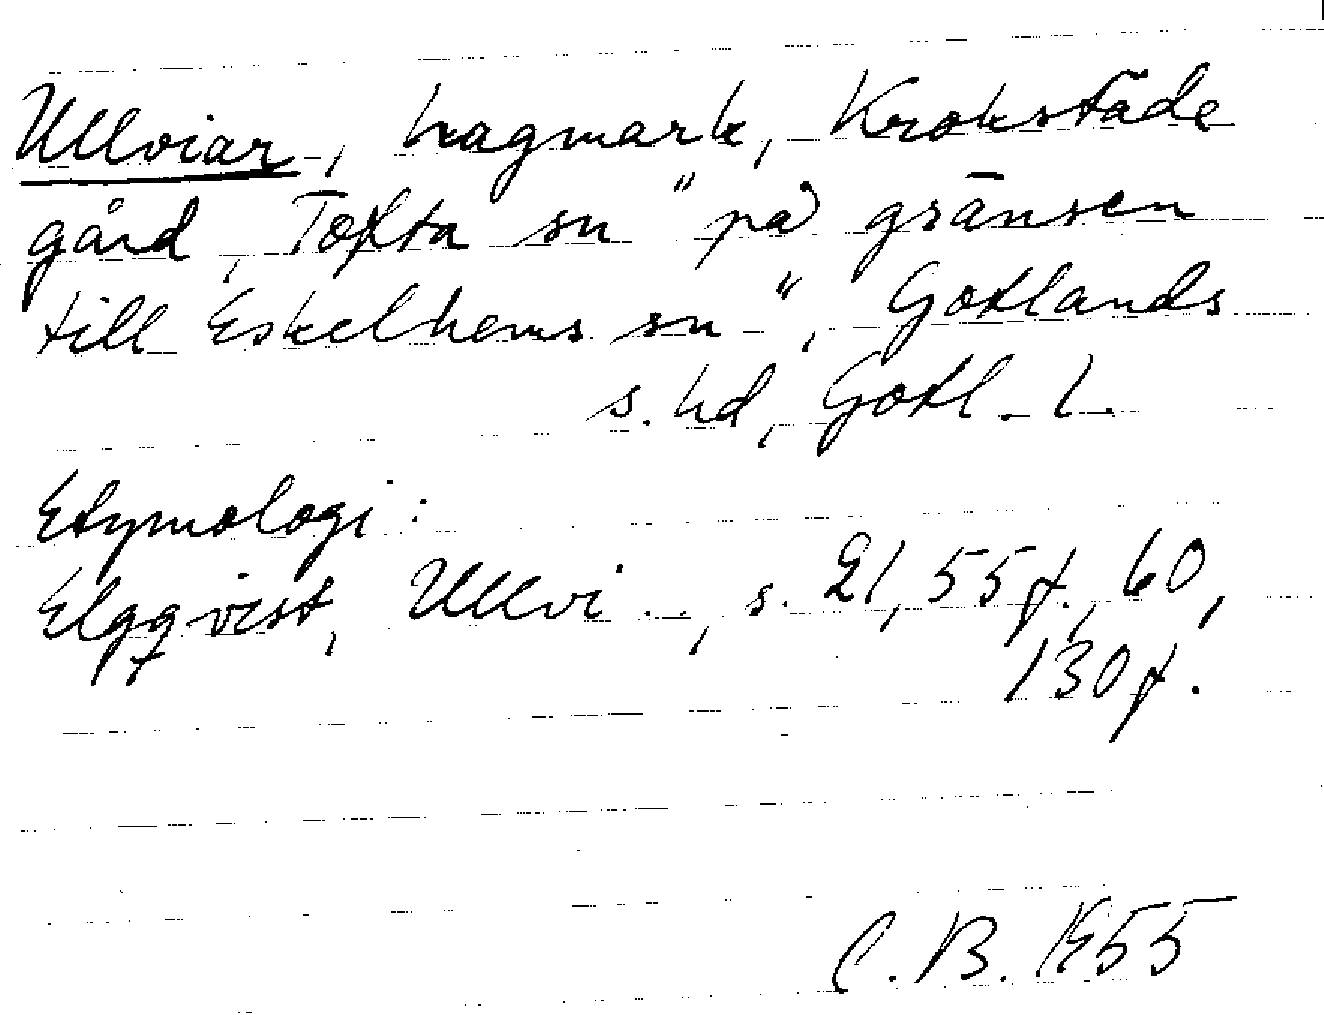 Ullviar, hagmark, Krokstäde
gård, Tofta sn "på gränsen
till Eskelhems sn", Gotlands
s. hd, Gotl. l.
Etymologi:
Elgqvist, Ullvi..., s. 21, 55f., 60,
130f.
C. B. 1955